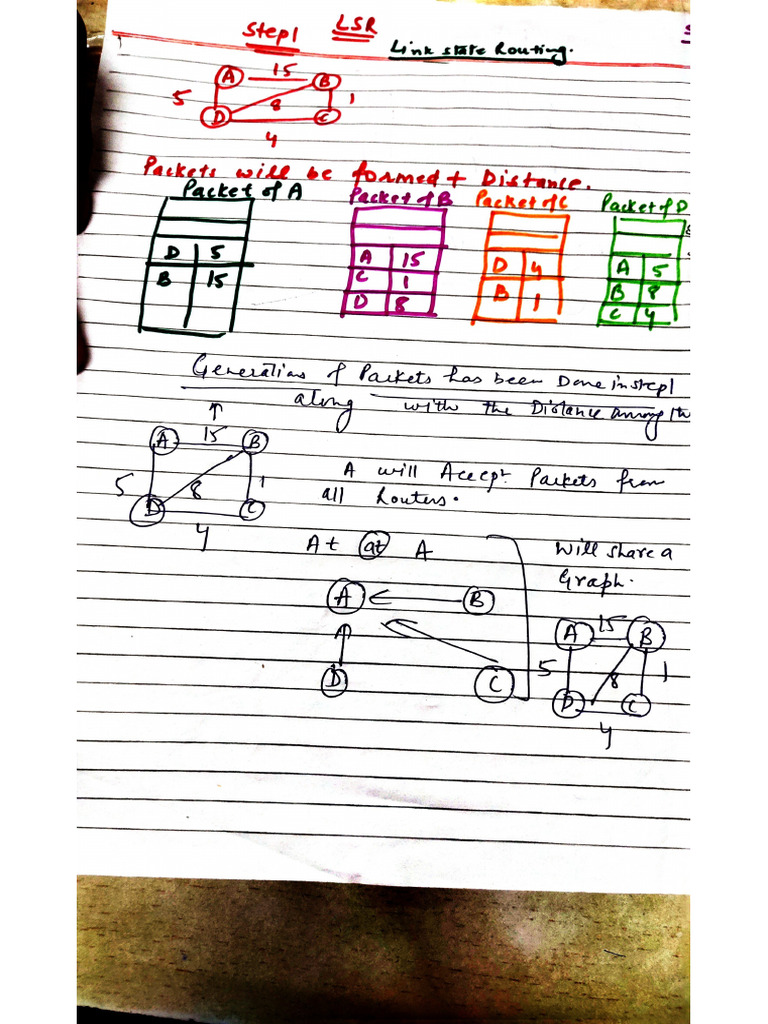 Step1 LSR
Link state Routing.
A 15 B
5 8 1
D C
4
Packets will be formed + Distance.
Packet of A Packet of B Packet of C Packet of D
D 5
B 15
A 15
C 1
D 8
D 4
B 1
A 5
B 8
C 4
Generations of Packets has been Done in step1
along with the Distance among th
A 15 B
5 8 1
D C
4
A will Accept Packets from
all Routers.
At at A
A B
D C
Will share a
Graph.
A 15 B
5 8 1
D C
4